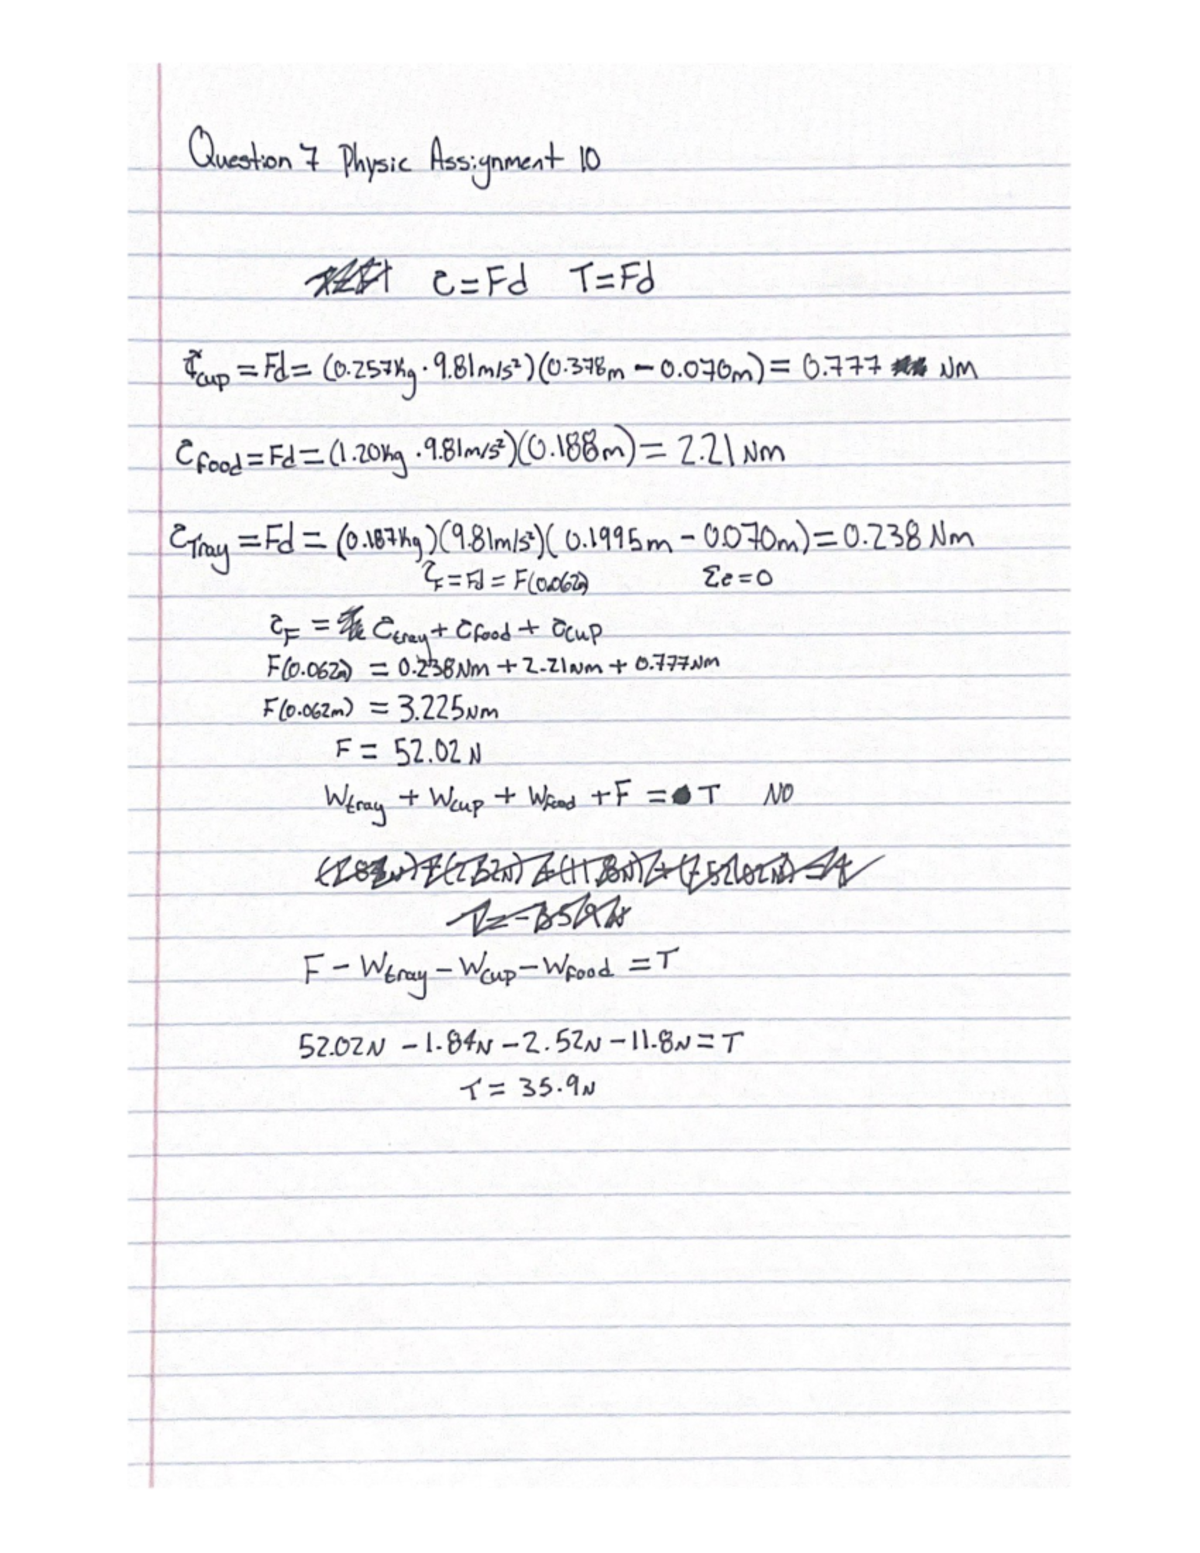 Question 7 Physic Assignment 10
τ=Fd T=Fd
τcup = Fd = (0.257kg · 9.81m/s²)(0.378m − 0.070m) = 0.777 Nm
τfood = Fd = (1.20kg · 9.81m/s²)(0.188m) = 2.21 Nm
τTray = Fd = (0.187kg)(9.81m/s²)(0.1995m − 0.070m) = 0.238 Nm
τF = Fd = F(0.062) Στ=0
τF = τtray + τfood + τcup
F(0.062) = 0.238Nm + 2.21Nm + 0.777Nm
F(0.062m) = 3.225Nm
F = 52.02 N
Wtray + Wcup + Wfood + F = T NO
F − Wtray − Wcup − Wfood = T
52.02N − 1.84N − 2.52N − 11.8N = T
T = 35.9N